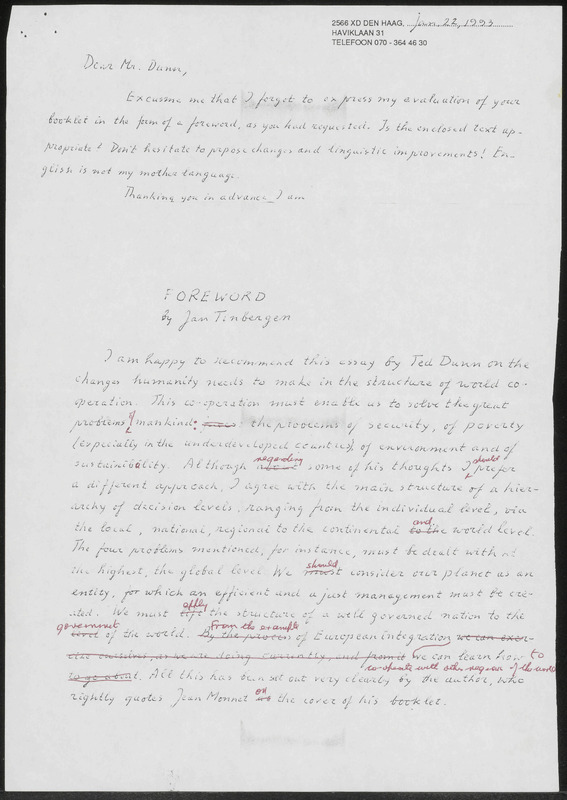 2566 XD DEN HAAG, June 22, 1993
HAVIKLAAN 31
TELEFOON 070 - 364 46 30
Dear Mr. Dunn,
Excusme me that I forgot to express my evaluation of your
booklet in the form of a foreword, as you had requested. Is the enclosed text ap-
propriate? Don't hesitate to propose changes and linguistic improvements! En-
glish is not my mother language.
Thanking you in advance, I am
FOREWORD
by Jan Tinbergen
I am happy to recommend this essay by Ted Dunn on the
changes humanity needs to make in the structure of world co-
operation. This co-operation must enable us to solve the great
problems of mankind: the problems of security, of poverty
(especially in the underdeveloped countries), of environment and of
regarding should
sustainability. Although some of his thoughts I prefer
a different approach, I agree with the main structure of a hier-
archy of decision levels, ranging from the individual level, via
and
the local, national, regional to the continental to the world level.
The four problems mentioned, for instance, must be dealt with at
the highest, the global level. We
should
must consider our planet as an
entity, for which an efficient and a just management must be cre-
ated. We must
apply
lift the structure of a well governed nation to the
government
level of the world.
From the example
By the process of European integration we can exer-
cise ourselves, as we are doing currently, and from it we can learn how to
co-operate with other regions of the world
to go about. All this has been set out very clearly by the author, who
rightly quotes Jean Monnet
on
the cover of his booklet.